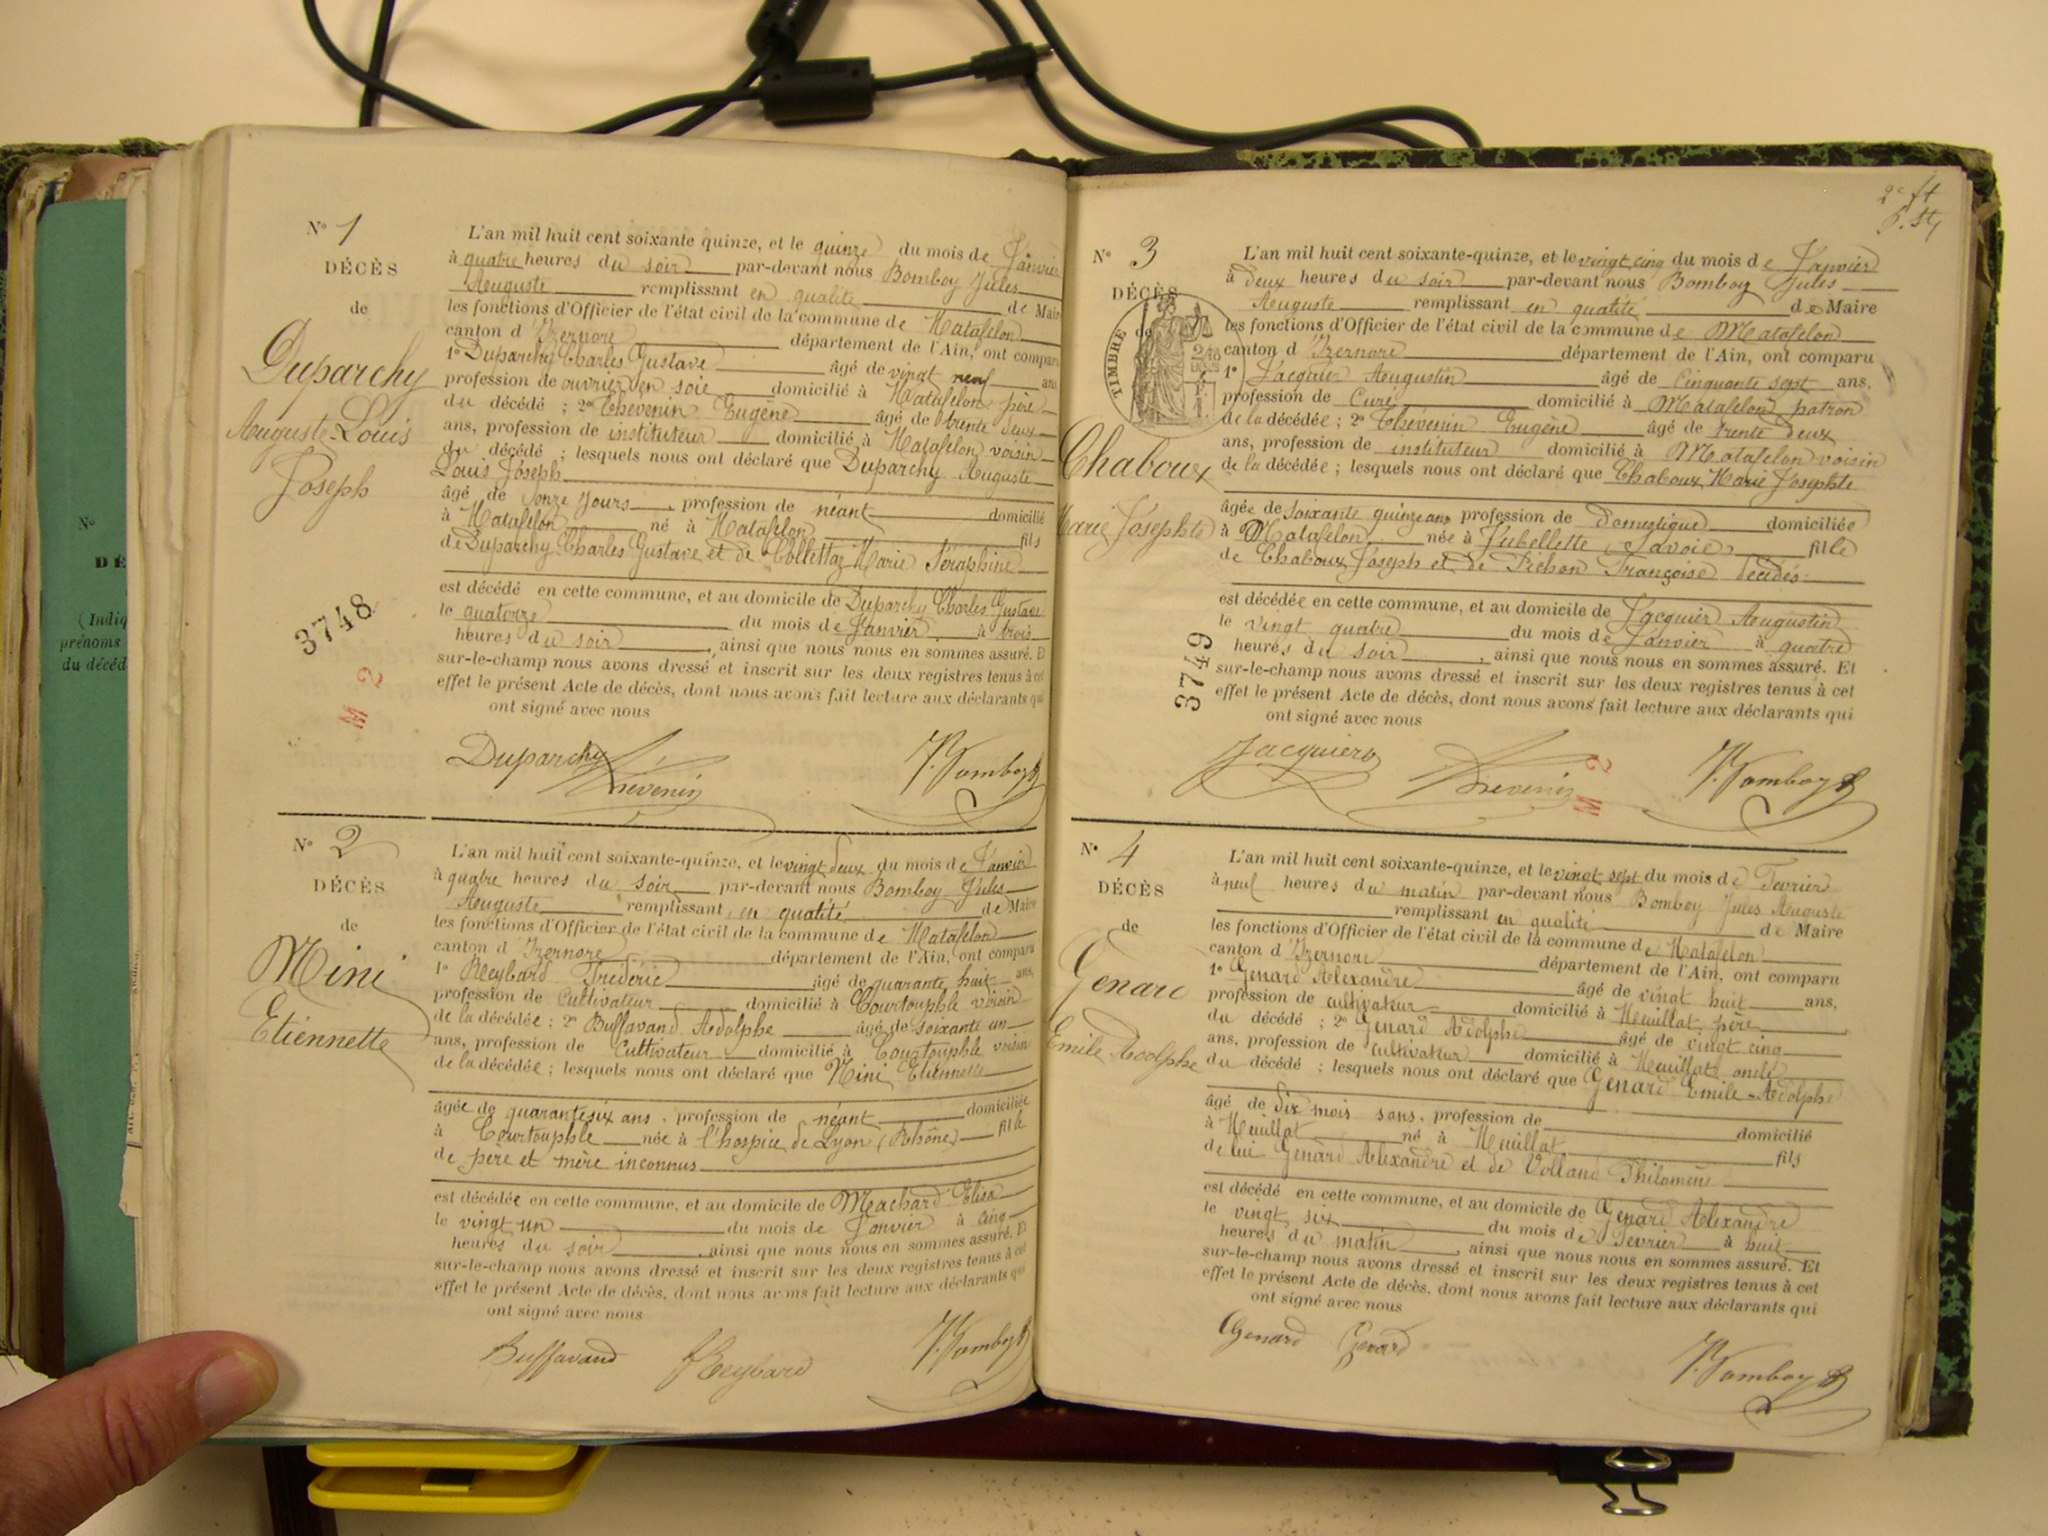 N° 1
DÉCÈS
de
Duparchy
Auguste-Louis
Joseph
3748
M 2
L'an mil huit cent soixante quinze, et le quinze du mois de Janvier
à quatre heures du soir par-devant nous Bomboy Jules
Auguste remplissant en qualité de Maire
les fonctions d'Officier de l'état civil de la commune de Matafelon
canton d'Izernore département de l'Ain, ont comparu
1° Duparchy Charles Gustave âgé de vingt neuf ans
profession de ouvrier en soie domicilié à Matafelon père
du décédé ; 2° Thévenin Eugène âgé de trente deux
ans, profession de instituteur domicilié à Matafelon voisin
du décédé ; lesquels nous ont déclaré que Duparchy Auguste
Louis Joseph
âgé de onze jours, profession de néant domicilié
à Matafelon né à Matafelon fils
de Duparchy Charles Gustave et de Collettaz Marie Séraphine
est décédé en cette commune, et au domicile de Duparchy Charles Gustave
le quatorze du mois de Janvier à trois
heures du soir, ainsi que nous nous en sommes assuré. Et
sur-le-champ nous avons dressé et inscrit sur les deux registres tenus à cet
effet le présent Acte de décès, dont nous avons fait lecture aux déclarants qui
ont signé avec nous
Duparchy Thévenin J. Bomboy
N° 2
DÉCÈS
de
Mini
Etiennette
L'an mil huit cent soixante-quinze, et le vingt deux du mois de Janvier
à quatre heures du soir par-devant nous Bomboy Jules
Auguste remplissant en qualité de Maire
les fonctions d'Officier de l'état civil de la commune de Matafelon
canton d'Izernore département de l'Ain, ont comparu
1° Reybard Frédéric âgé de quarante huit ans,
profession de Cultivateur domicilié à Courtouphle voisin
de la décédée ; 2° Buffavand Adolphe âgé de soixante un
ans, profession de Cultivateur domicilié à Courtouphle voisin
de la décédée ; lesquels nous ont déclaré que Mini Etiennette
âgée de quarante six ans, profession de néant domiciliée
à Courtouphle née à l'hospice de Lyon (Rhône) fille
de père et mère inconnus
est décédée en cette commune, et au domicile de Machard Elisa
le vingt un du mois de Janvier à cinq
heures du soir, ainsi que nous nous en sommes assuré. Et
sur-le-champ nous avons dressé et inscrit sur les deux registres tenus à cet
effet le présent Acte de décès, dont nous avons fait lecture aux déclarants qui
ont signé avec nous
Buffavand F Reybard J. Bomboy
N°
DÉ
(Indiq
prénoms
du décéd
2e ft
N° 3
DÉCÈS
de
TIMBRE
Chaboux
Marie Josephte
3749
L'an mil huit cent soixante-quinze, et le vingt cinq du mois de Janvier
à deux heures du soir par-devant nous Bomboy Jules
Auguste remplissant en qualité de Maire
les fonctions d'Officier de l'état civil de la commune de Matafelon
canton d'Izernore département de l'Ain, ont comparu
1° Jacquier Augustin âgé de cinquante sept ans,
profession de Curé domicilié à Matafelon patron
de la décédée ; 2° Thévenin Eugène âgé de trente deux
ans, profession de instituteur domicilié à Matafelon voisin
de la décédée ; lesquels nous ont déclaré que Chaboux Marie Josephte
âgée de soixante quinze ans profession de domestique domiciliée
à Matafelon née à Jubellette (Savoie) fille
de Chaboux Joseph et de Pichon Françoise décédés
est décédée en cette commune, et au domicile de Jacquier Augustin
le vingt quatre du mois de Janvier à quatre
heures du soir, ainsi que nous nous en sommes assuré. Et
sur-le-champ nous avons dressé et inscrit sur les deux registres tenus à cet
effet le présent Acte de décès, dont nous avons fait lecture aux déclarants qui
ont signé avec nous
Jacquier Thévenin J. Bomboy
M 2
N° 4
DÉCÈS
de
Genard
Emile Adolphe
L'an mil huit cent soixante-quinze, et le vingt sept du mois de Fevrier
à neuf heures du matin par-devant nous Bomboy Jules Auguste
remplissant en qualité de Maire
les fonctions d'Officier de l'état civil de la commune de Matafelon
canton d'Izernore département de l'Ain, ont comparu
1° Genard Alexandre âgé de vingt huit ans,
profession de cultivateur domicilié à Heuillat père
du décédé ; 2° Genard Adolphe âgé de vingt cinq
ans, profession de cultivateur domicilié à Heuillat oncle
du décédé ; lesquels nous ont déclaré que Genard Emile-Adolphe
âgé de dix mois sans, profession de domicilié
à Heuillat né à Heuillat fils
de lui Genard Alexandre et de Volland Philomène
est décédé en cette commune, et au domicile de Genard Alexandre
le vingt six du mois de Fevrier à huit
heures du matin, ainsi que nous nous en sommes assuré. Et
sur-le-champ nous avons dressé et inscrit sur les deux registres tenus à cet
effet le présent Acte de décès, dont nous avons fait lecture aux déclarants qui
ont signé avec nous
Genard Genard J. Bomboy